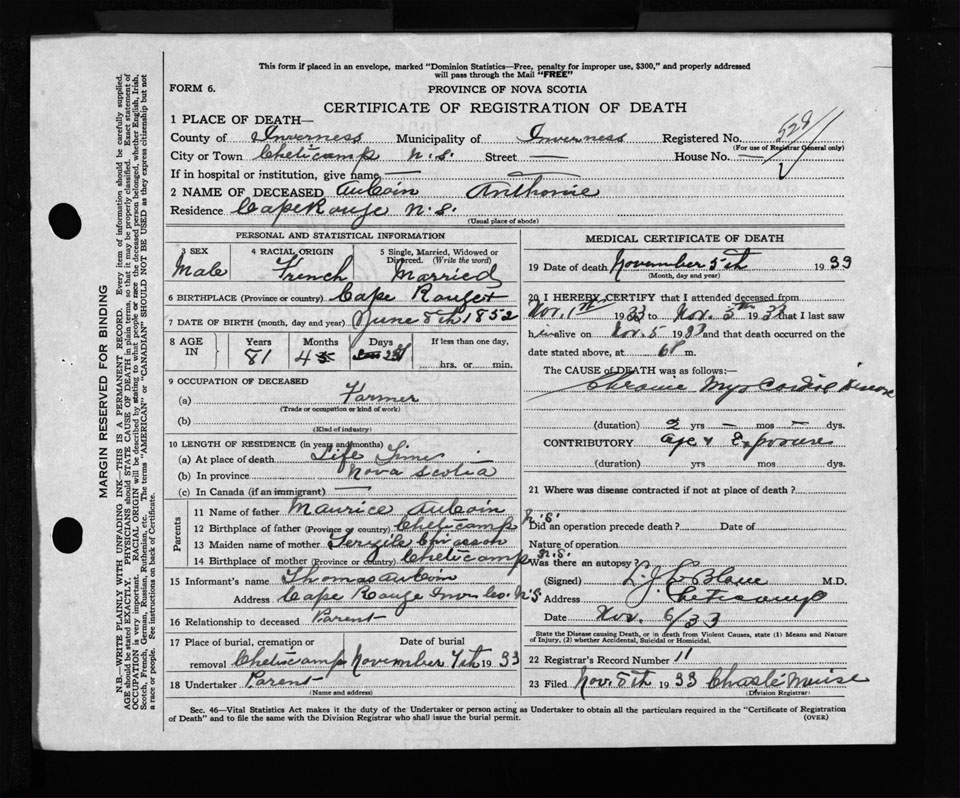 This form if placed in an envelope, marked "Dominion Statistics—Free, penalty for improper use, $300," and properly addressed
will pass through the Mail "FREE"
FORM 6.
PROVINCE OF NOVA SCOTIA
CERTIFICATE OF REGISTRATION OF DEATH
1 PLACE OF DEATH—
County of Inverness Municipality of Inverness Registered No.
(For use of Registrar General only)
City or Town Cheticamp N.S. Street — House No. —
If in hospital or institution, give name —
2 NAME OF DECEASED AuCoin Anthonie
Residence Cape Rouge N.S.
(Usual place of abode)
PERSONAL AND STATISTICAL INFORMATION
3 SEX Male
4 RACIAL ORIGIN French
5 Single, Married, Widowed or Divorced. (Write the word) Married
6 BIRTHPLACE (Province or country) Cape Rouge
7 DATE OF BIRTH (month, day and year) June 8th 1852
8 AGE IN Years 81 Months 4 Days
If less than one day,
hrs. or min.
9 OCCUPATION OF DECEASED
(a) Farmer
(Trade or occupation or kind of work)
(b)
(Kind of industry)
10 LENGTH OF RESIDENCE (in years and months)
(a) At place of death Life Time
(b) In province Nova Scotia
(c) In Canada (if an immigrant) —
Parents
11 Name of father Maurice AuCoin
12 Birthplace of father (Province or country) Cheticamp N.S.
13 Maiden name of mother Chiasson
14 Birthplace of mother (Province or country) Cheticamp N.S.
15 Informant's name Thomas AuCoin
Address Cape Rouge Inv. Co. N.S
16 Relationship to deceased Parent
17 Place of burial, cremation or removal Cheticamp
Date of burial November 7th 1933
18 Undertaker Parent
(Name and address)
MEDICAL CERTIFICATE OF DEATH
19 Date of death November 5th 1933
(Month, day and year)
20 I HEREBY CERTIFY that I attended deceased from
Nov. 1st 1933 to Nov. 5th 1933 that I last saw
him alive on Nov. 5 1933 and that death occurred on the
date stated above, at 6 P m.
The CAUSE of DEATH was as follows:—
Chronic Myo Cardial Disease
(duration) 2 yrs — mos — dys.
CONTRIBUTORY Age & Exposure
(duration) yrs mos dys.
21 Where was disease contracted if not at place of death?
Did an operation precede death? Date of
Nature of operation
Was there an autopsy?
(Signed) L. J. LeBlanc M.D.
Address Cheticamp
Date Nov. 6/33
State the Disease causing Death, or in death from Violent Causes, state (1) Means and Nature
of Injury, (2) whether Accidental, Suicidal or Homicidal.
22 Registrar's Record Number 11
23 Filed Nov. 8th 1933
(Division Registrar)
Sec. 46—Vital Statistics Act makes it the duty of the Undertaker or person acting as Undertaker to obtain all the particulars required in the "Certificate of Registration
of Death" and to file the same with the Division Registrar who shall issue the burial permit.
(OVER)
MARGIN RESERVED FOR BINDING
N.B.—WRITE PLAINLY WITH UNFADING INK—THIS IS A PERMANENT RECORD. Every item of information should be carefully supplied.
AGE should be stated EXACTLY. PHYSICIANS should STATE CAUSE OF DEATH in plain terms, so that it may be properly classified. Exact statement of
OCCUPATION is very important. RACIAL ORIGIN will be described by stating to what people or race the deceased person belonged, whether English, Irish,
Scotch, French, German, Russian, Ruthenian, etc. The terms "AMERICAN" or "CANADIAN" SHOULD NOT BE USED as they express citizenship but not
a race or people. See instructions on back of Certificate.